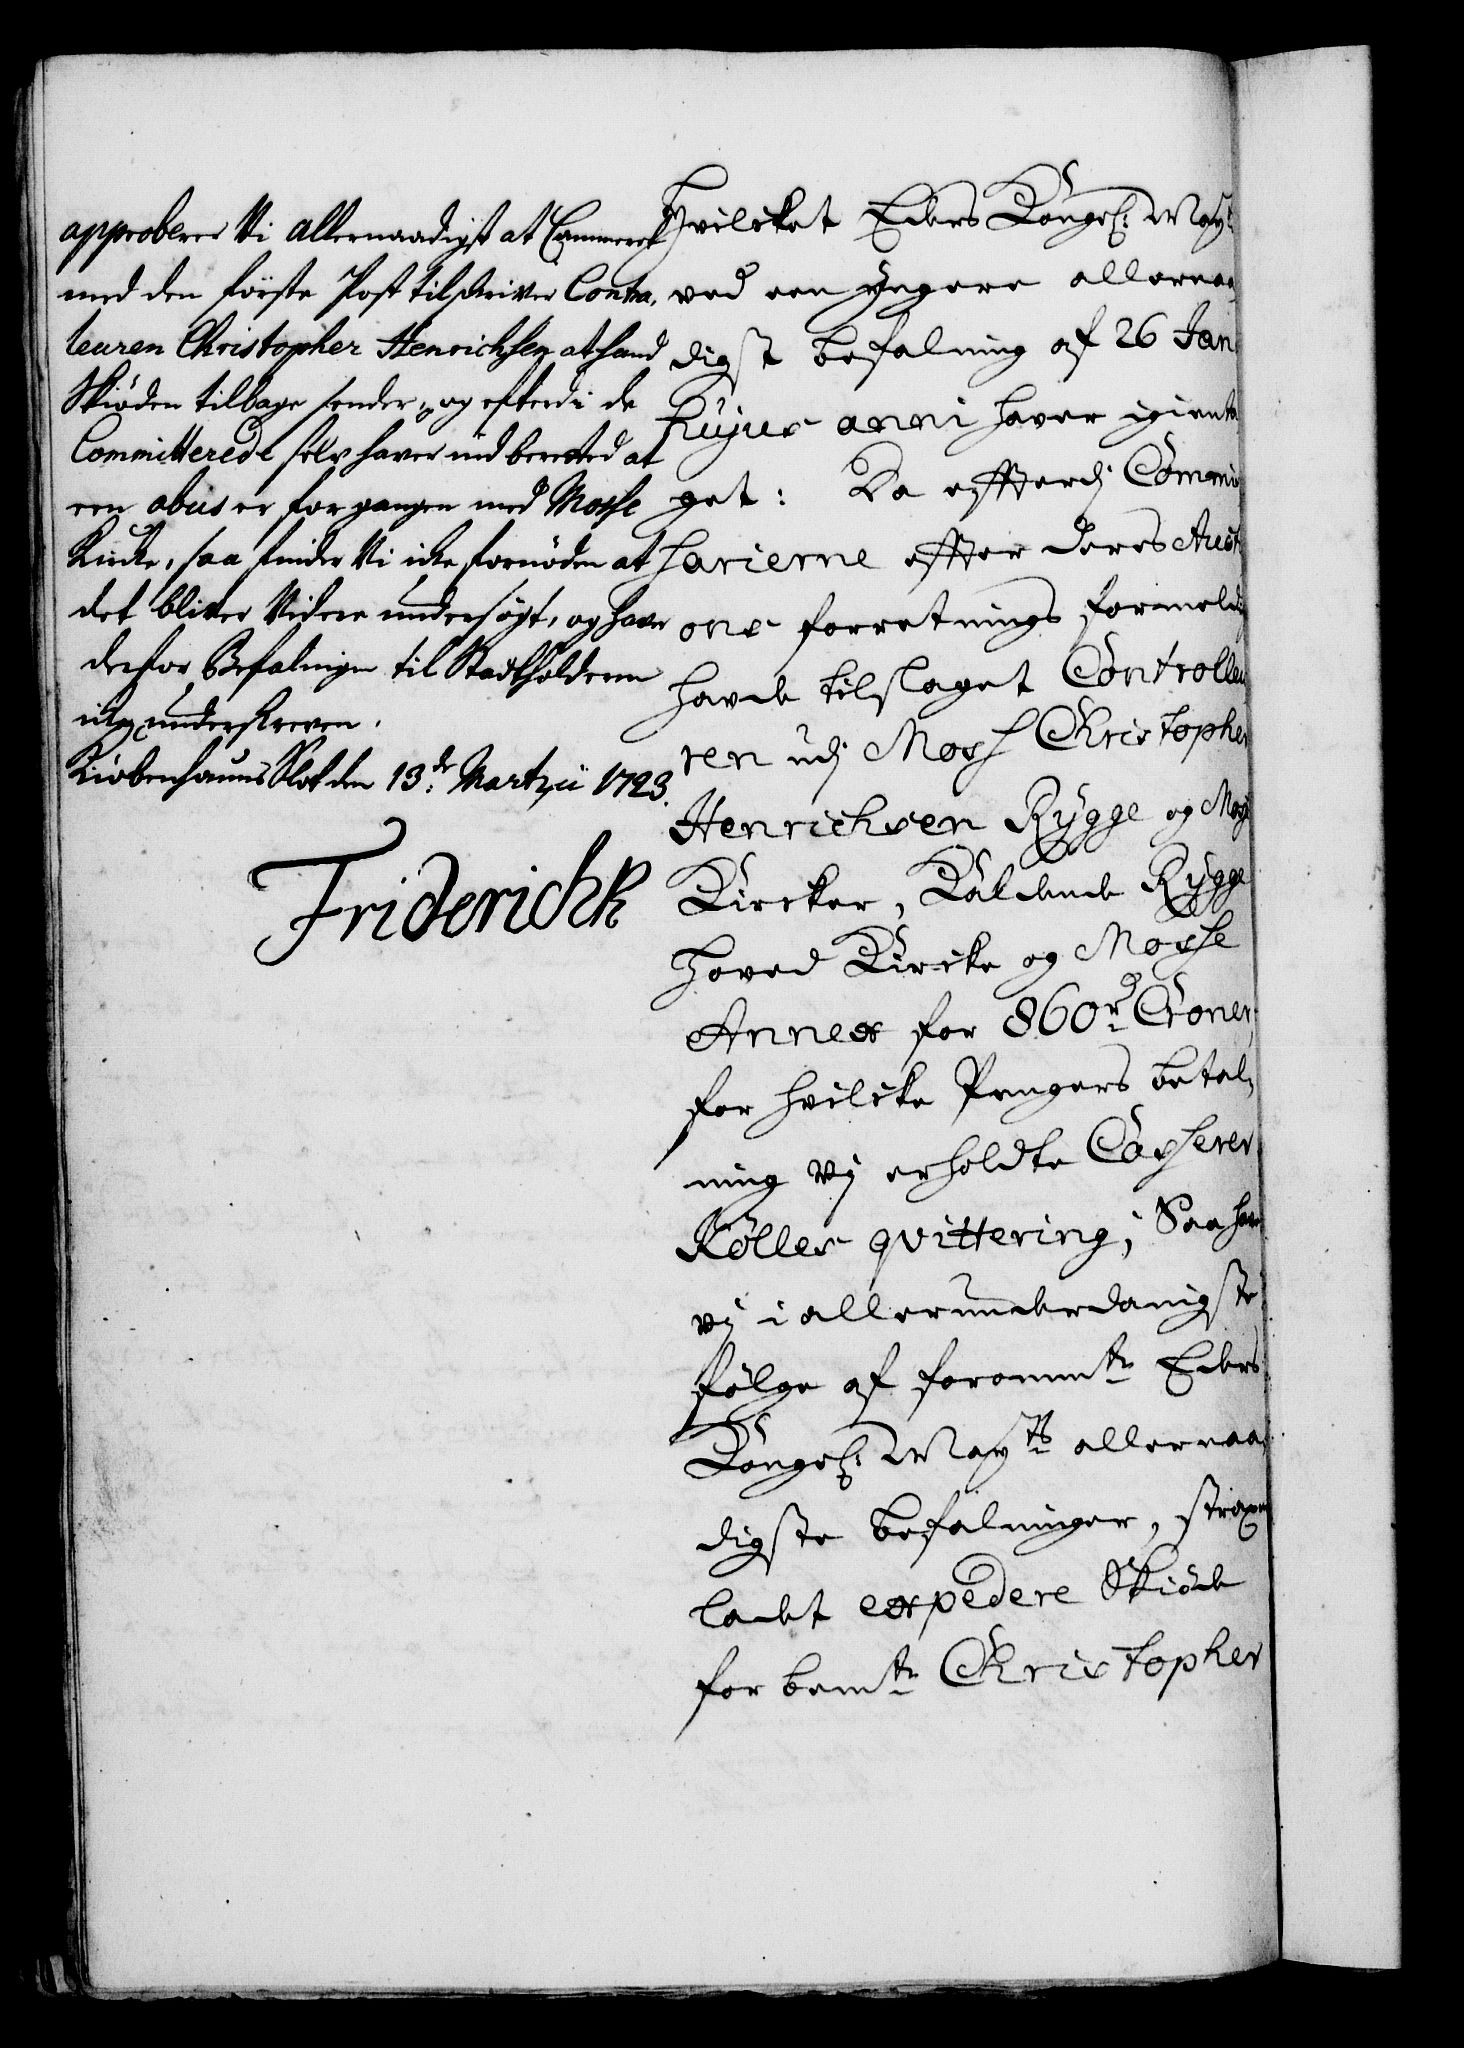 approberer Vi allernaadigst at Cammeret
med den förste Post tilskriver Contra,
leuren Christopher Henrichsen at hand
Skiöden tilbage sender, og efterdi de
Committerede selv haver indberetted at
een abus er forgangen med Mosse
Kirke, saa finder Vi icke fornöden at
det bliver Videre undersögt, og haver
derfor Befalningen til Stadtholderen
icke underskreven.
Kiöbenhauns Slot den 13de Martzii 1723.
Friderich R
Hvilcket Eders Kongel: May:ts
ved een yngere allernaa,
digst befalning af 26 Jan
hujus anni haver igienta
get: Da efterdj Commis
sarierne efter deres Aucti
ons forretnings formelding
havde tilslaget Controlleu
ren udj Moss Christopher
Henrichsen Rygge og Mosse
Kircker, Kaldende Rygge
hoved Kircke og Mosse
Annex for 860 rd Croner,
for hvilcke Pengers betal,
ning vij erholdte Casserer
Kölles qvittering; Saa have
vij i allerunderdanigste
fölge af forommte Eders
Kongel: Mayts allernaa,
digste befalninger, straxen
ladet expedere Skiöde
for bemte Christopher